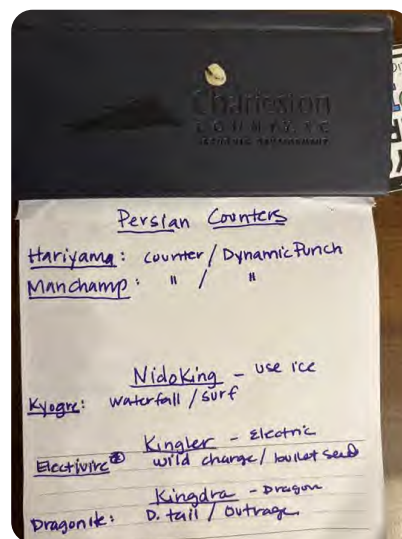 Charleston
Persian Counters
Hariyama: Counter / Dynamic Punch
Manchamp: " / "
NidoKing - use ice
Kyogre: Waterfall / surf
Kingler - Electric
Electivire wild charge / bullet seed
Kingdra - Dragon
Dragonite: D. tail / Outrage